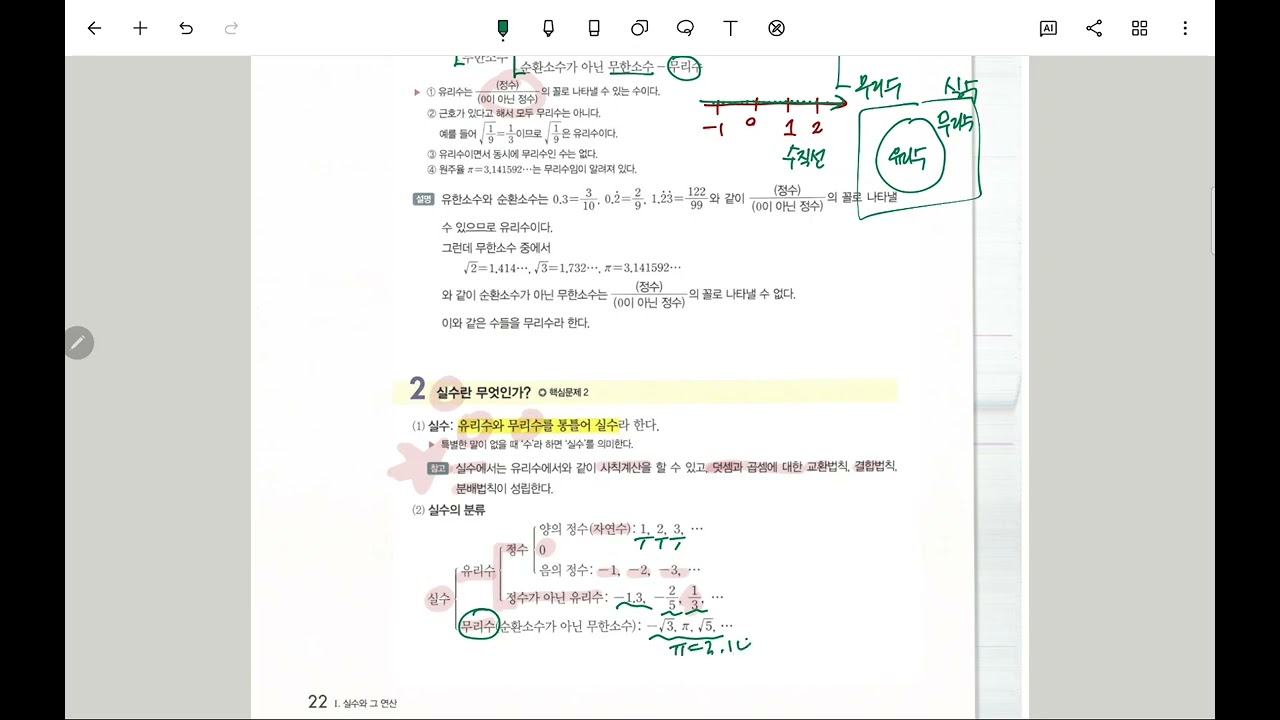 AI
무한소수
순환소수가 아닌 무한소수 – 무리수
① 유리수는 (정수)/(0이 아닌 정수)의 꼴로 나타낼 수 있는 수이다.
② 근호가 있다고 해서 모두 무리수는 아니다.
예를 들어 √(1/9)=1/3이므로 √(1/9)은 유리수이다.
③ 유리수이면서 동시에 무리수인 수는 없다.
④ 원주율 π=3.141592…는 무리수임이 알려져 있다.
-1 0 1 2
수직선
무리수
실수
무리수
유리수
설명 유한소수와 순환소수는 0.3=3/10, 0.2̇=2/9, 1.2̇3̇=122/99와 같이 (정수)/(0이 아닌 정수)의 꼴로 나타낼
수 있으므로 유리수이다.
그런데 무한소수 중에서
√2=1.414…, √3=1.732…, π=3.141592…
와 같이 순환소수가 아닌 무한소수는 (정수)/(0이 아닌 정수)의 꼴로 나타낼 수 없다.
이와 같은 수들을 무리수라 한다.
2 실수란 무엇인가? 핵심문제 2
(1) 실수: 유리수와 무리수를 통틀어 실수라 한다.
특별한 말이 없을 때 '수'라 하면 '실수'를 의미한다.
참고 실수에서는 유리수에서와 같이 사칙계산을 할 수 있고, 덧셈과 곱셈에 대한 교환법칙, 결합법칙,
분배법칙이 성립한다.
(2) 실수의 분류
양의 정수(자연수): 1, 2, 3, …
정수 0
유리수 음의 정수: -1, -2, -3, …
실수 정수가 아닌 유리수: -1.3, -2/5, 1/3, …
무리수(순환소수가 아닌 무한소수): -√3, π, √5, …
π=3.1
22 Ⅰ. 실수와 그 연산